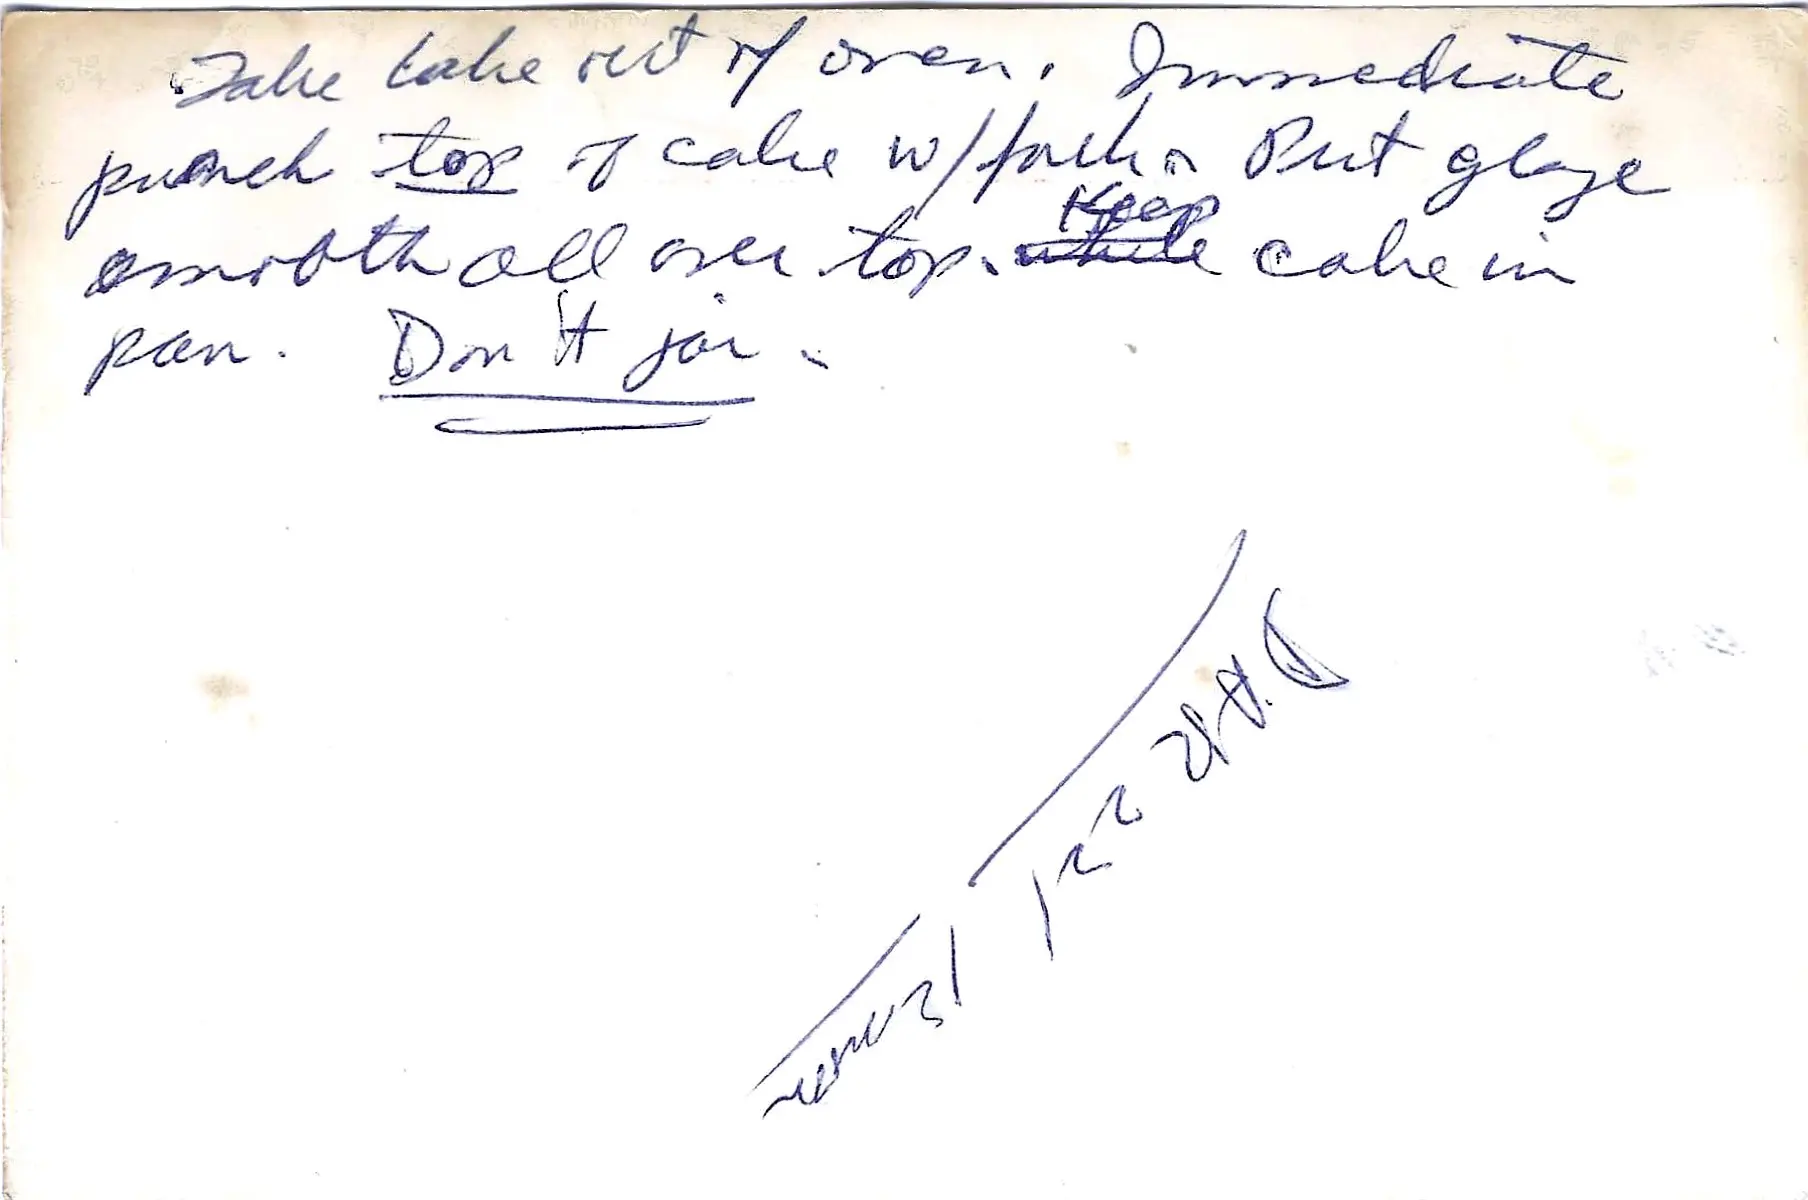 Take cake out of oven. Immediate
punch top of cake w/fork. Put glaze
smooth all over top. Keep cake in
pan. Don't jar.